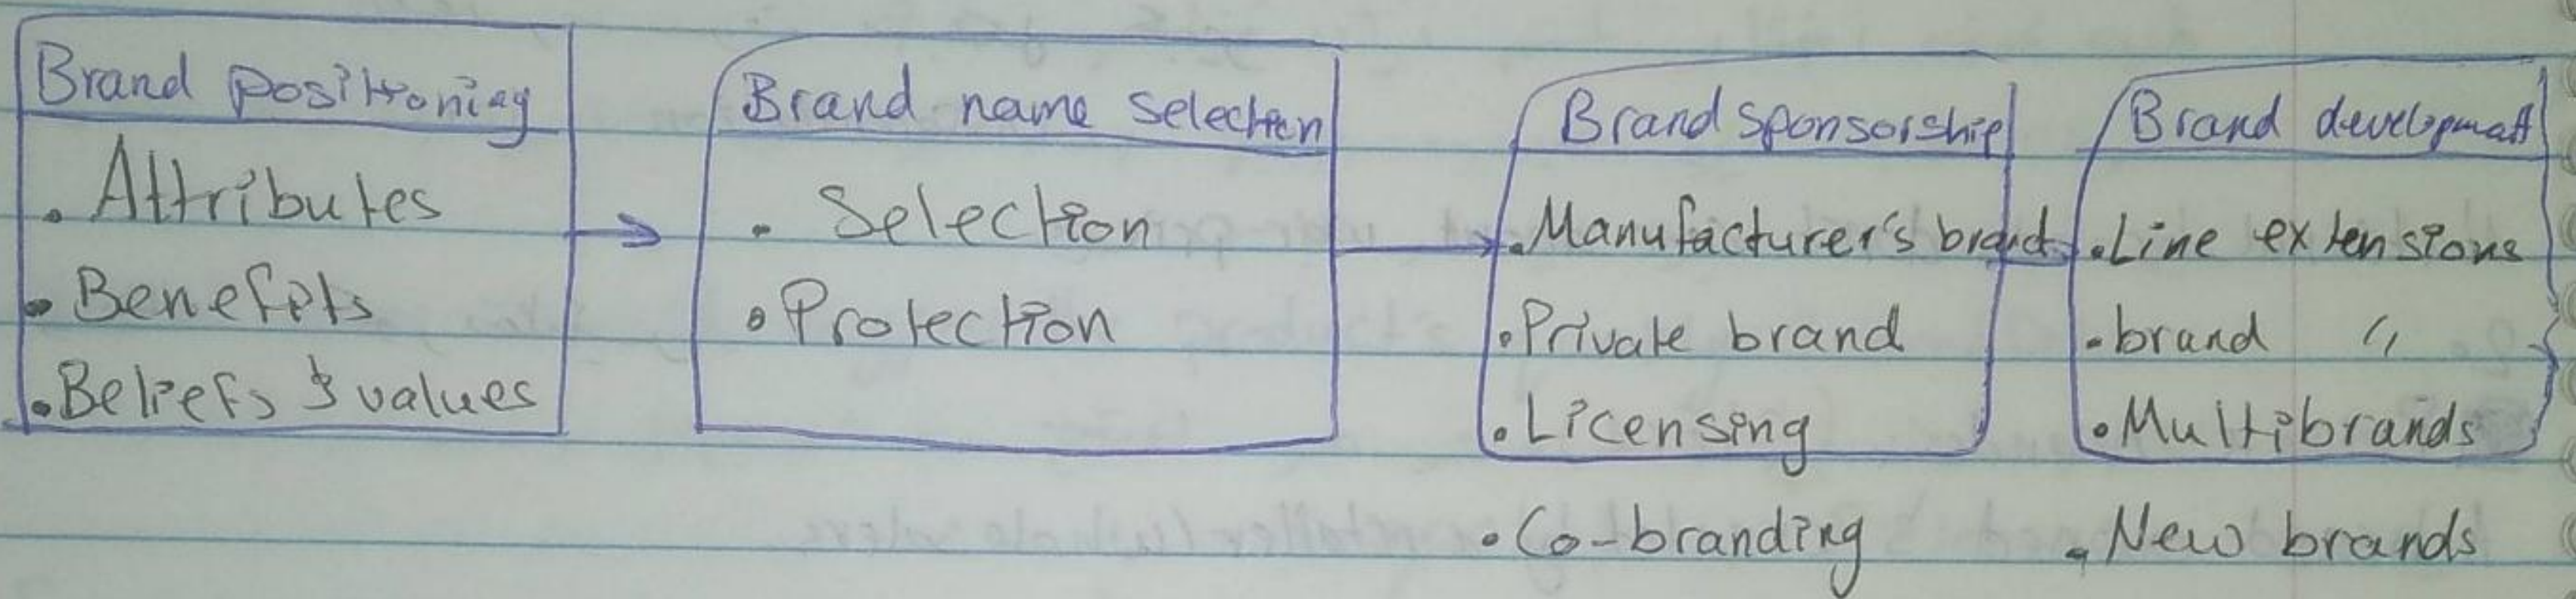 Brand positioning
. Attributes
. Benefits
. Beliefs & values
Brand name selection
. Selection
. Protection
Brand sponsorship
. Manufacturer's brand
. Private brand
. Licensing
. Co-branding
Brand development
. Line extensions
. brand "
. Multibrands
. New brands